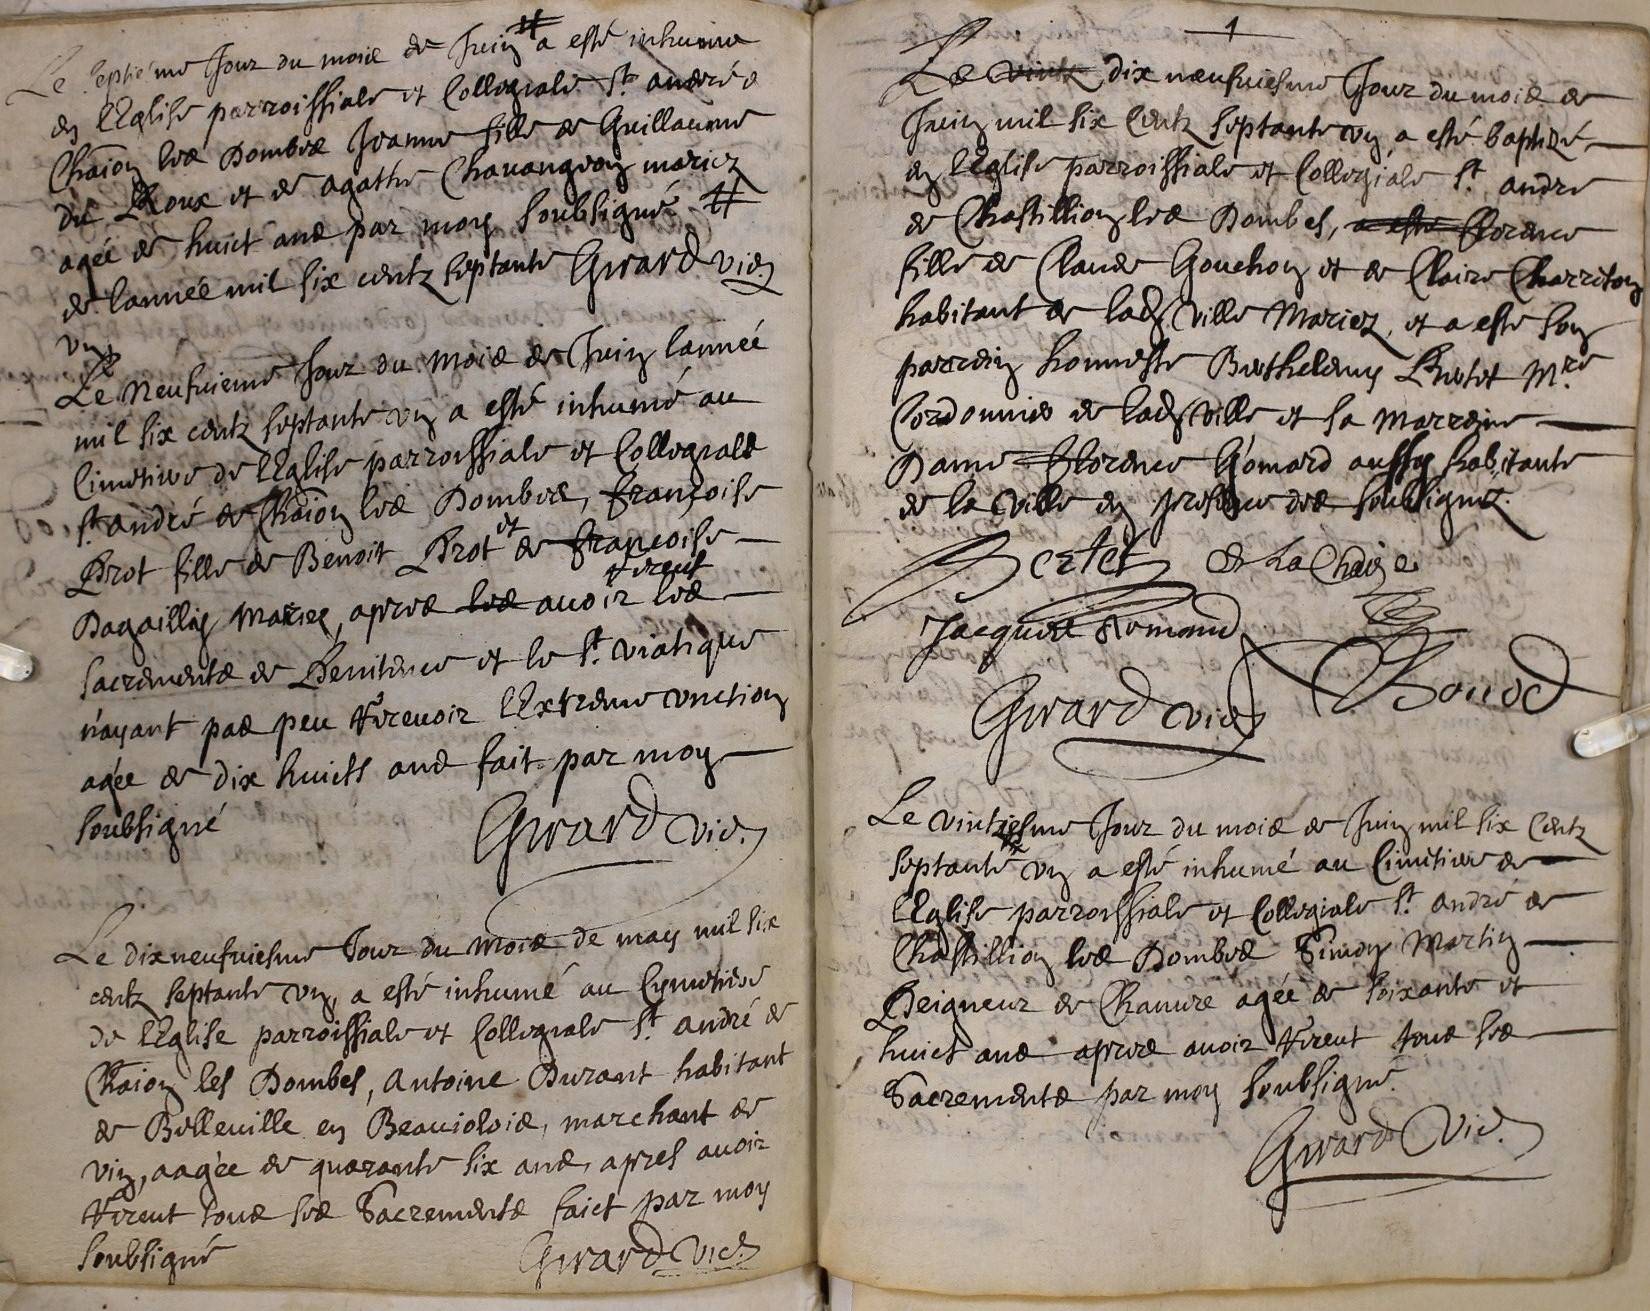 Le septiéme Jour du mois de Juin # a esté inhumée
en LEglise parroissiale et Collegiale St. andré d
Chãion les Dombes Jeanne fille de Guillaume
du Roux et de agathe Chauangeon mariez
agée de huict ans par moy soubsigné #
de lannéé mil six centz septante Girard vic.
vn
Le Neufuieme Jour du Mois de Juin lannéé
mil six centz septante vn a esté inhumé au
Cimetiere de LEglise parroissiale et Collegiale
St. andré de Chãion les Dombes, françoise
Prot fille de Benoit Prot et de françoise
Dagaillin Mariez, apres les avoir receut les
sacrements de Penitence et le St. viatique
n'ayant pas peu recevoir LExtreme vnction
agée de dix huicts ans fait par moy
soubsigné Girard vic.
Le dixneufuiesme Jour du Mois de may mil six
centz septante vn, a esté inhumé au Cymetiere
de LEglise parroissiale et Collegiale St andré de
Chãion les Dombes, Antoine Durant habitant
de Belleuille en Beauiolois, marchant de
vin, aagée de quarante six ans, apres auoir
receut tous les Sacrements faict par moy
soubsigné Girard vic.
1
Le vintz dix neufuiesme Jour du mois de
Juin mil six Centz septante vn a esté baptizé
en LEglise parroissiale et Collegiale St. andre
de Chastillion les Dombes, a esté florence
fille de Claude Gouchon et de Claire Charreton
habitant de lad. Ville Mariez, et a esté son
parrein honneste Berthelemy Bertet Mre.
Cordonnier de lad. Ville et sa Marreine
Dame florence Gomard aussy habitante
de la Ville en presence des soubsignéz.
Bertet De La Chaize
Jacques
Girard vic.
Le vintziesme Jour du mois de Juin mil six Centz
septante vn a esté inhumé au Cimetiere de
LEglise parroissiale et Collegiale St. andré de
Chastillion les Dombes Simon Martin
Seigneur de Chamre agéé de soixante et
huict ans apres auoir receut tous les
Sacrements par moy soubsigné.
Girard Vic.